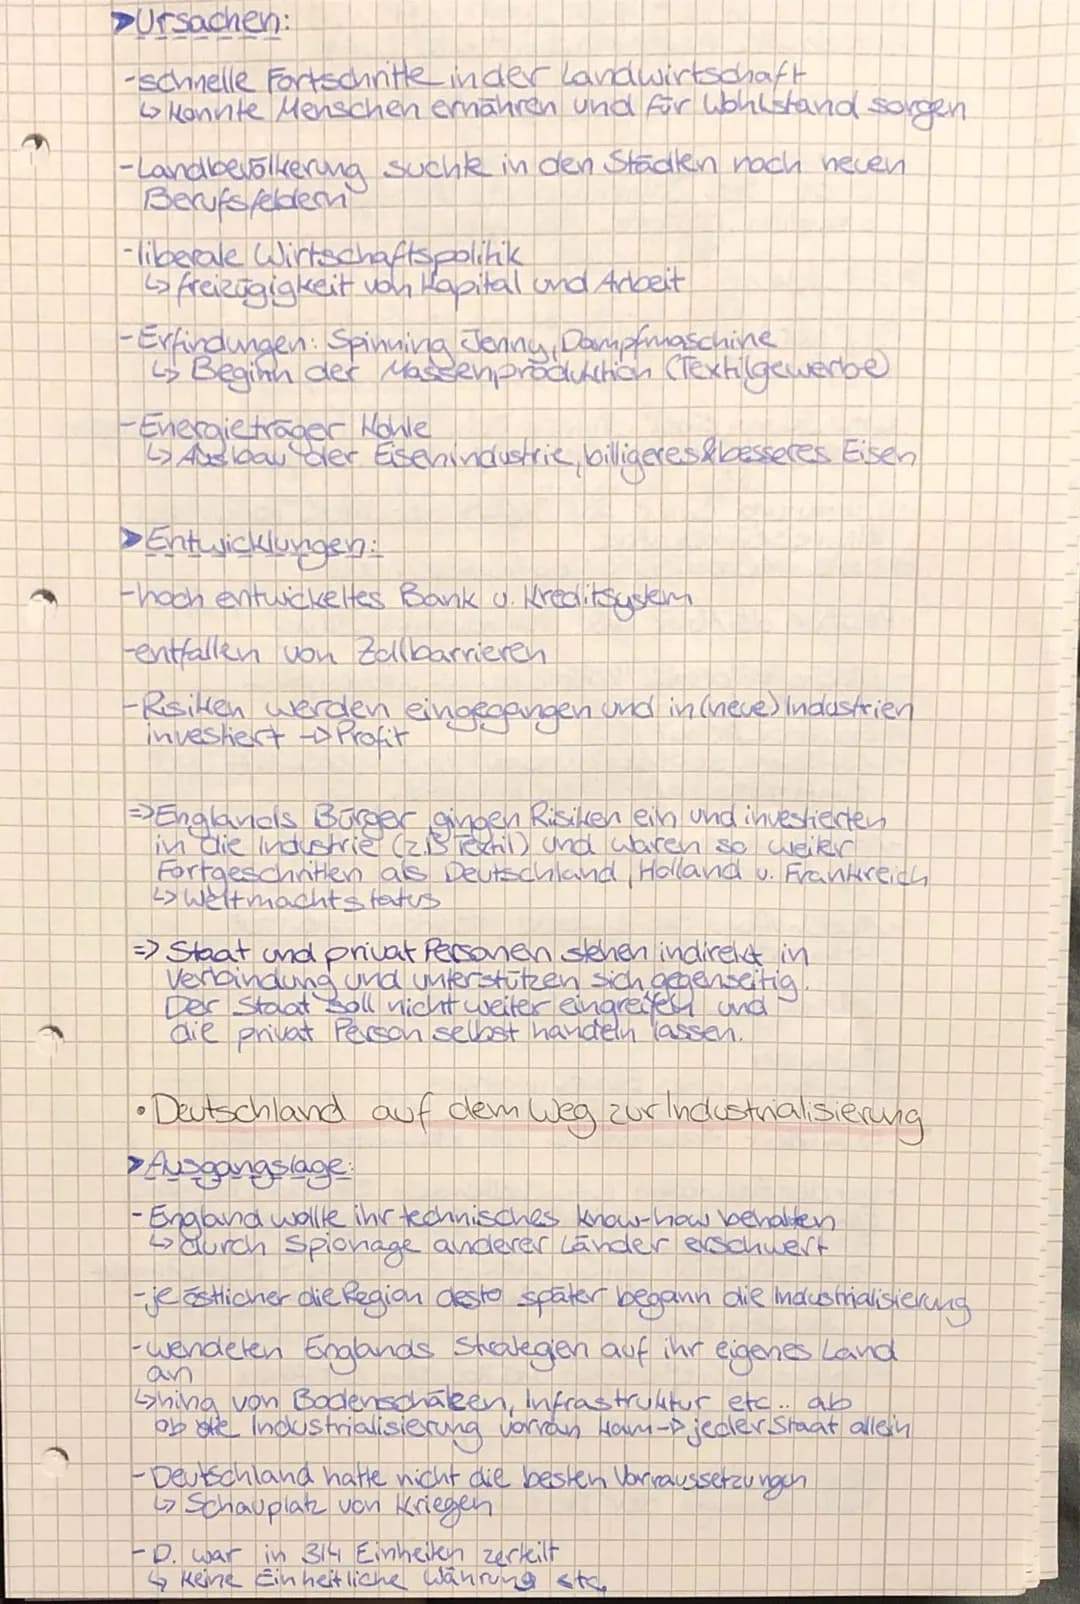 ➤Ursachen:
-schnelle Fortschritte in der Landwirtschaft
↳ konnte Menschen ernähren und für Wohlstand sorgen
-Landbevölkerung suchte in den Städten nach neuen
Berufsfeldern
-liberale Wirtschaftspolitik
↳ freizügigkeit von Kapital und Arbeit
-Erfindungen: Spinning Jenny, Dampfmaschine
↳ Beginn der Massenproduktion (Textilgewerbe)
-Energieträger Kohle
↳ Ausbau der Eisenindustrie, billigeres & besseres Eisen
➤Entwicklungen:
-hoch entwickeltes Bank u. Kreditsystem
-entfallen von Zollbarrieren
-Risiken werden eingegangen und in (neue) Industrien
investiert → Profit
=> Englands Bürger gingen Risiken ein und investierten
in die Industrie (z.B Textil) und waren so weiter
Fortgeschritten als Deutschland, Holland u. Frankreich
↳ Weltmachtstatus
=> Staat und privat Personen stehen indirekt in
Verbindung und unterstützen sich gegenseitig.
Der Staat soll nicht weiter eingreifen und
die privat Person selbst handeln lassen.
• Deutschland auf dem Weg zur Industrialisierung
➤Ausgangslage:
- England wollte ihr technisches know-how behalten
↳ durch Spionage anderer Länder erschwert
-je östlicher die Region desto später begann die Industrialisierung
-wendeten Englands Strategien auf ihr eigenes Land
an
↳ hing von Bodenschätzen, Infrastruktur etc.. ab
ob die Industrialisierung vorran kam → jeder Staat allein
- Deutschland hatte nicht die besten Vorraussetzungen
↳ Schauplatz von Kriegen
- D. war in 314 Einheiten zerteilt
↳ keine Einheitliche Währung etc.